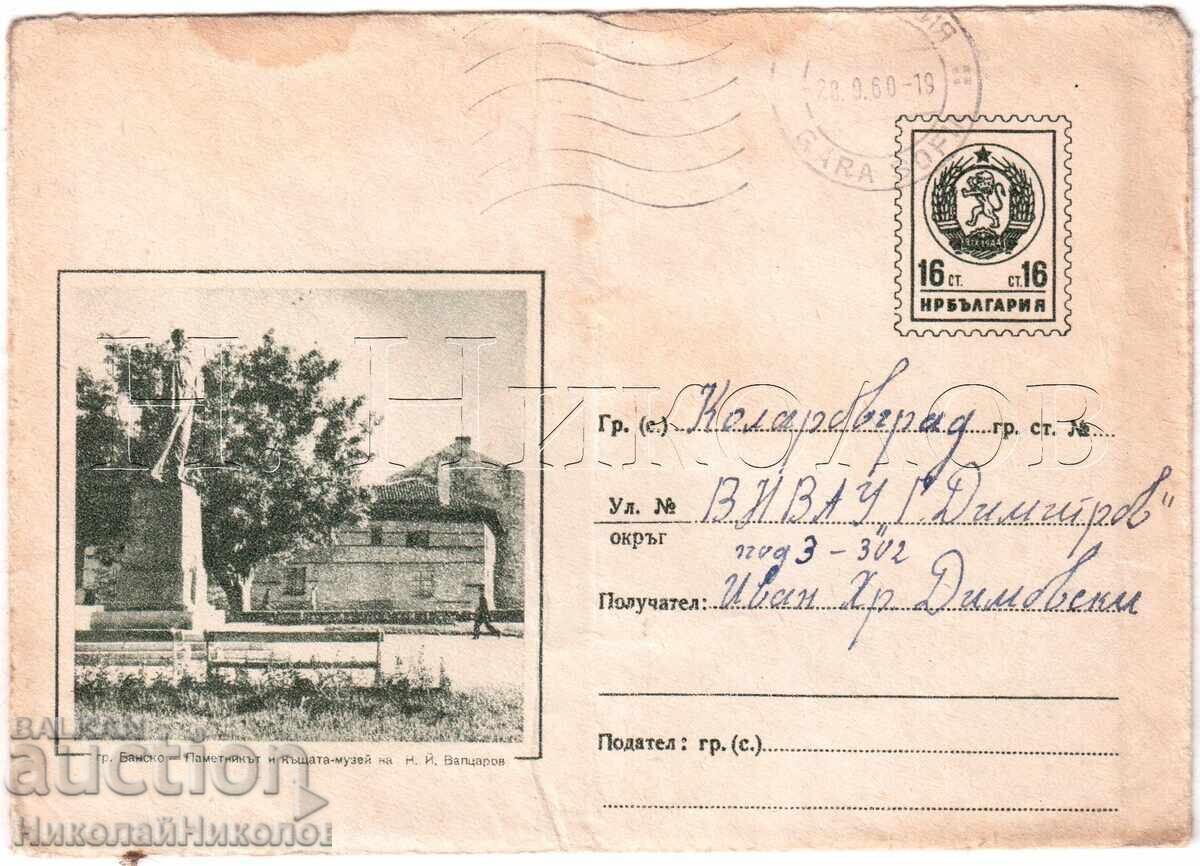 28.9.60-19
GARA SOFIA
9 IX 1944
16 СТ. СТ. 16
НРБЪЛГАРИЯ
Н. Николов
Гр. (с.) Коларовград гр. ст. №
Ул. № ВНВАУ "Г. Димитров"
окръг под 3-302
Получател: Иван Хр Димовски
Подател: гр. (с.)
гр. Банско — Паметникът и къщата-музей на Н. Й. Вапцаров
BALKAN
auction
НиколайНиколов